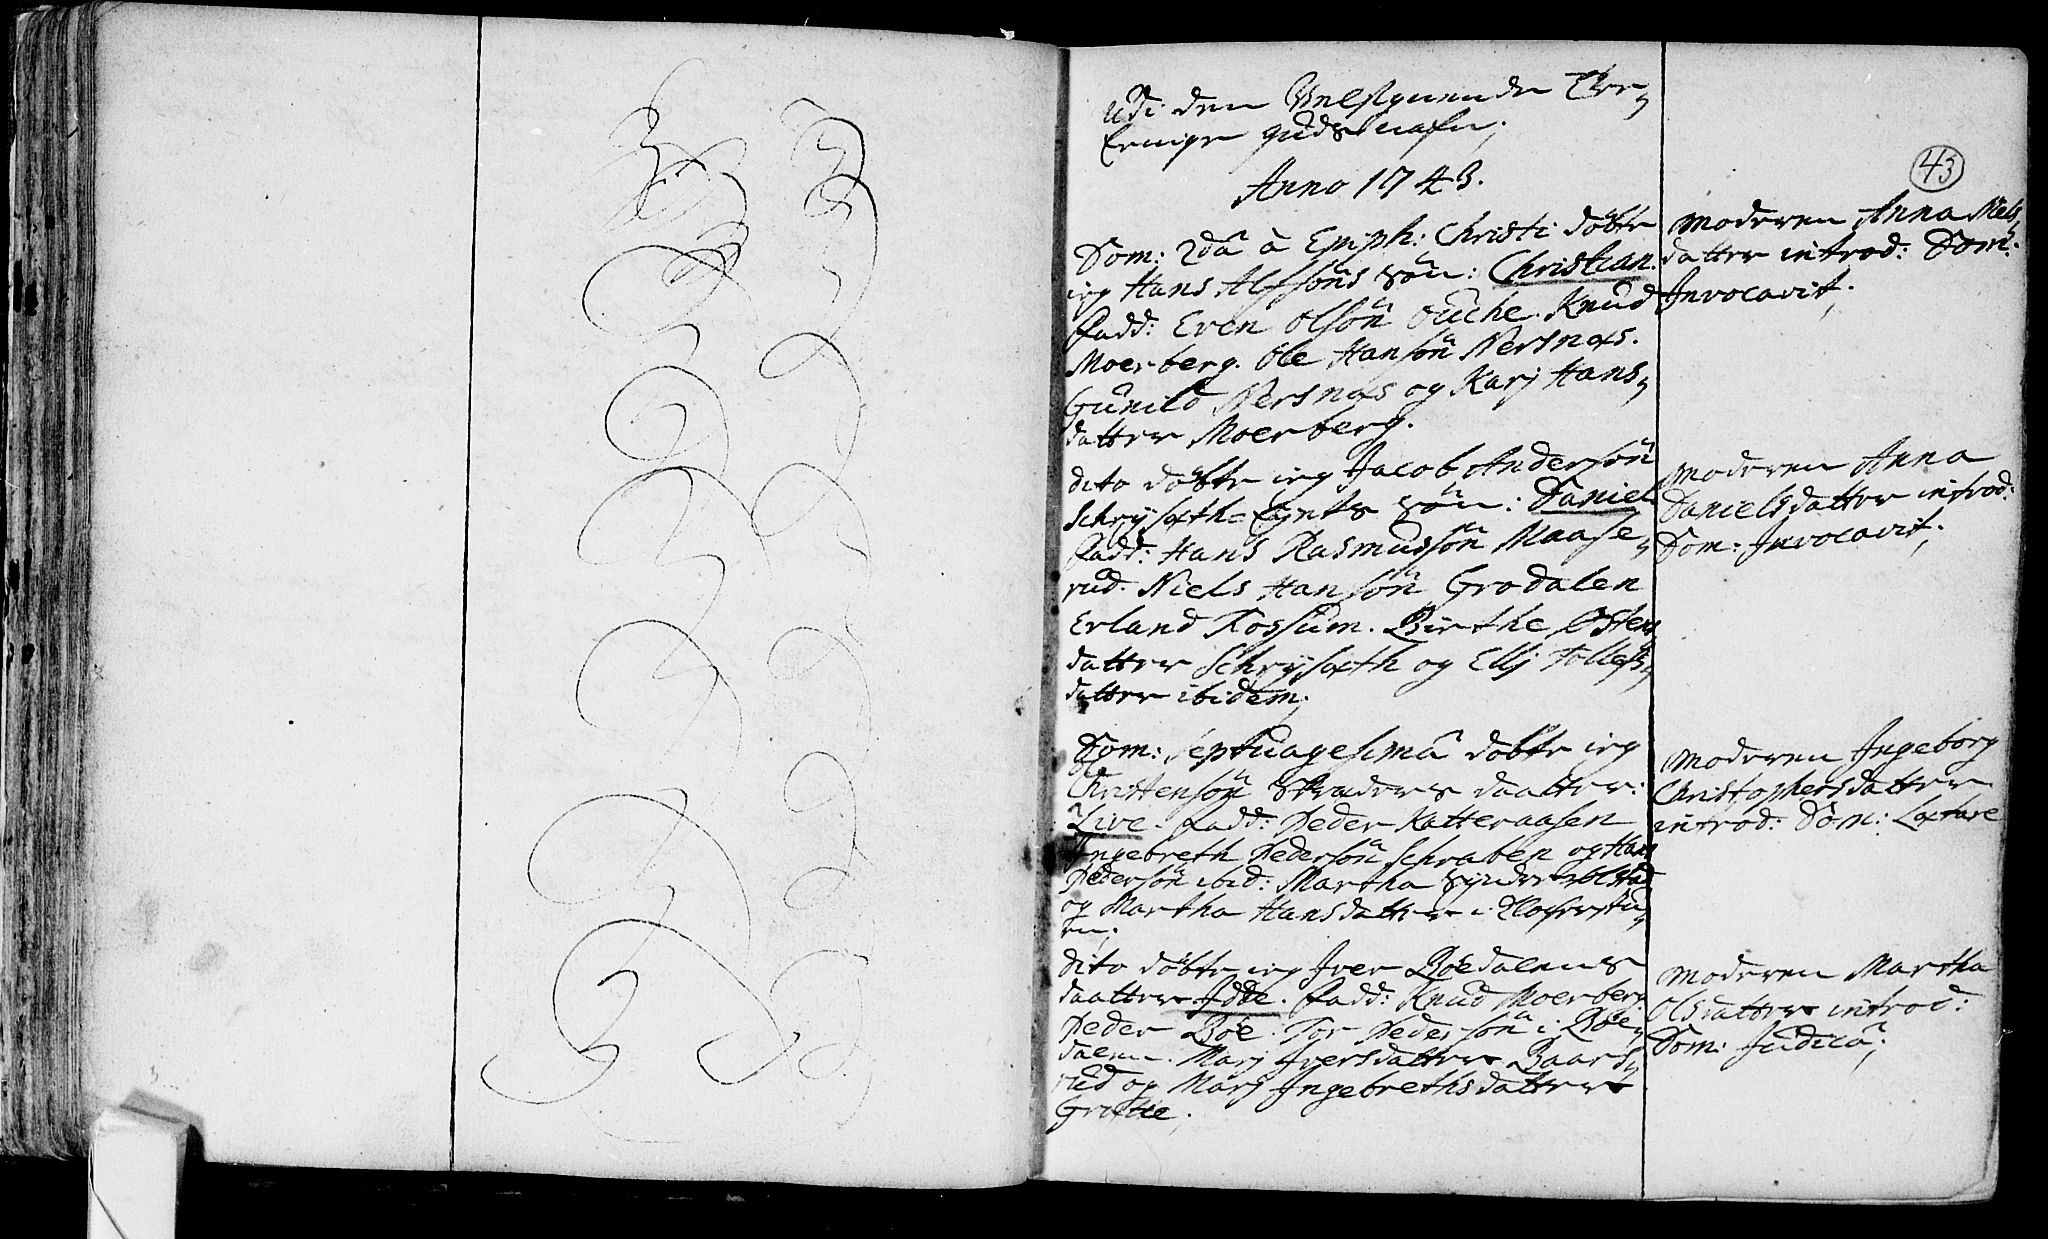 Udi den Velsignende Tre,
Eenige Guds nafn;
Anno 1743.
43
Dom: 2dâ à Epiph: Christi döbte
ieg Hans Alfsöns Sön: Christian.
fadd: Even Olsön Kuche. Knud
Moerberg. Ole Hansön Nersnæs.
Gunild Nersnæs og Karj Hans,
datter Moerberg.
Moderen Anna Niels,
datter introd: Dom:
Invocavit;
dito döbte ieg Jacob Andersön
Schrÿsæth-Eyets Sön: Daniel
fadd: Hans Rasmussön Maase,
rud. Niels Hansön Grodalen
Erland Rossum. Birthe Østens
datter Schrÿsæth og Ellj Tollefs,
datter ibidem;
Moderen Anna
Danielsdatter introd:
Dom: Invocavit;
Dom: Septuagesimâ döbte ieg
Christensön daatter:
Live. fadd: Peder Katteraasen
Ingebreth Pedersön Schraben og Hans
Pedersön ibid: Martha Søndre Olstad
og Martha Hansdatter i
en;
Moderen Ingeborg
Christophersdatter
introd: Dom: Lætare
dito döbte ieg Iver Böedalens
daatter Idde. fadd: Knud Moerberg
Peder Böe. Tor Pedersön i Böe,
dalen. Marj Iversdatter Baars,
rud og Marj Ingebrethsdatter
Grøtte;
Moderen Martha
Olsdatter introd:
Dom: Judicâ;